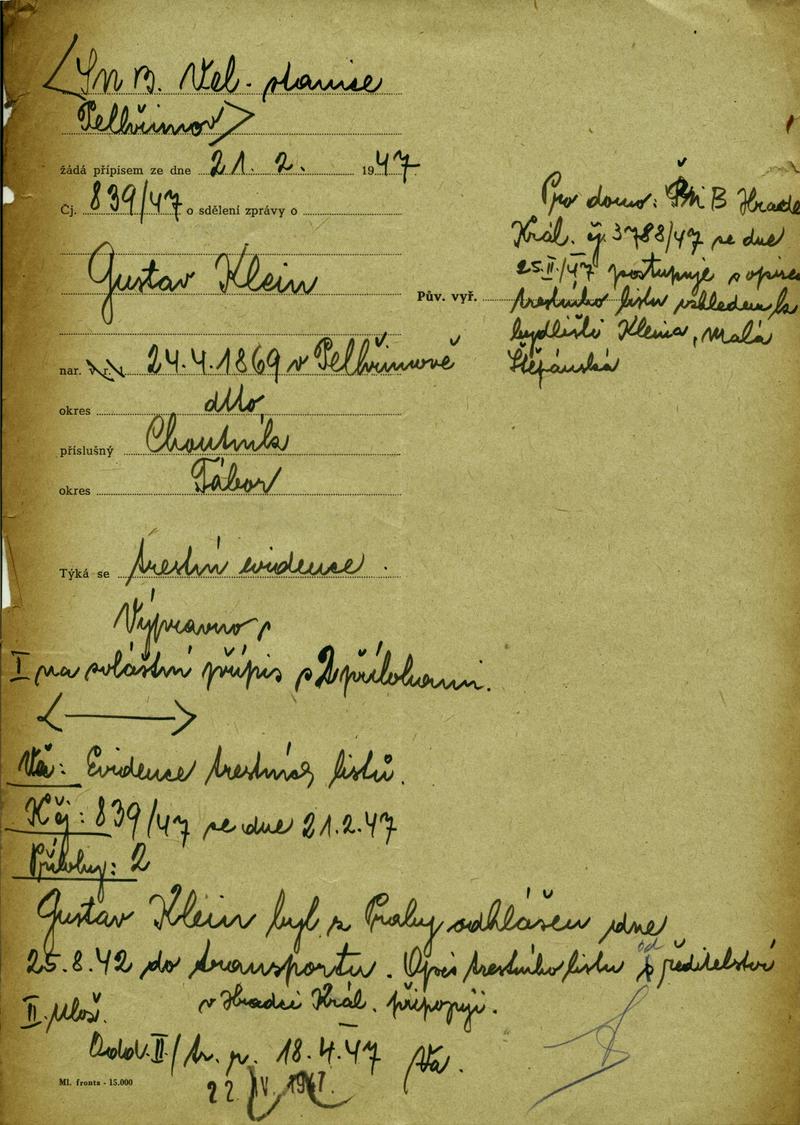 SNB. Vel. stanice
Pelhřimov
žádá přípisem ze dne 21. 2. 1947
Čj. 839/47 o sdělení zprávy o
Gustav Klein
nar. 24.4.1869 v Pelhřimově
okres dtto
příslušný Choutník
okres Tábor
Týká se trestní evidence.
Výpravno
I na zvláštní přípis s 2 přílohami.
Pův. vyř.
Pro domo: SNB Hradec
Král. čj. 3788/47 ze dne
25.II./47 postupuje s opisem
trestního listu vzhledem k
bydlišti Kleina, Malá
Štěpánská
Vě: Evidence trestních listů.
K čj: 839/47 ze dne 21.2.47
Přílohy: 2
Gustav Klein byl z Prahy odhlášen dne
25.8.42 do transportu. Opis trestního listu od ředitelství
v Hradci Král. připojuji.
II. Ulož.
Odd. II/ 18.4.47
22 IV. 1947
Ml. fronta - 15.000